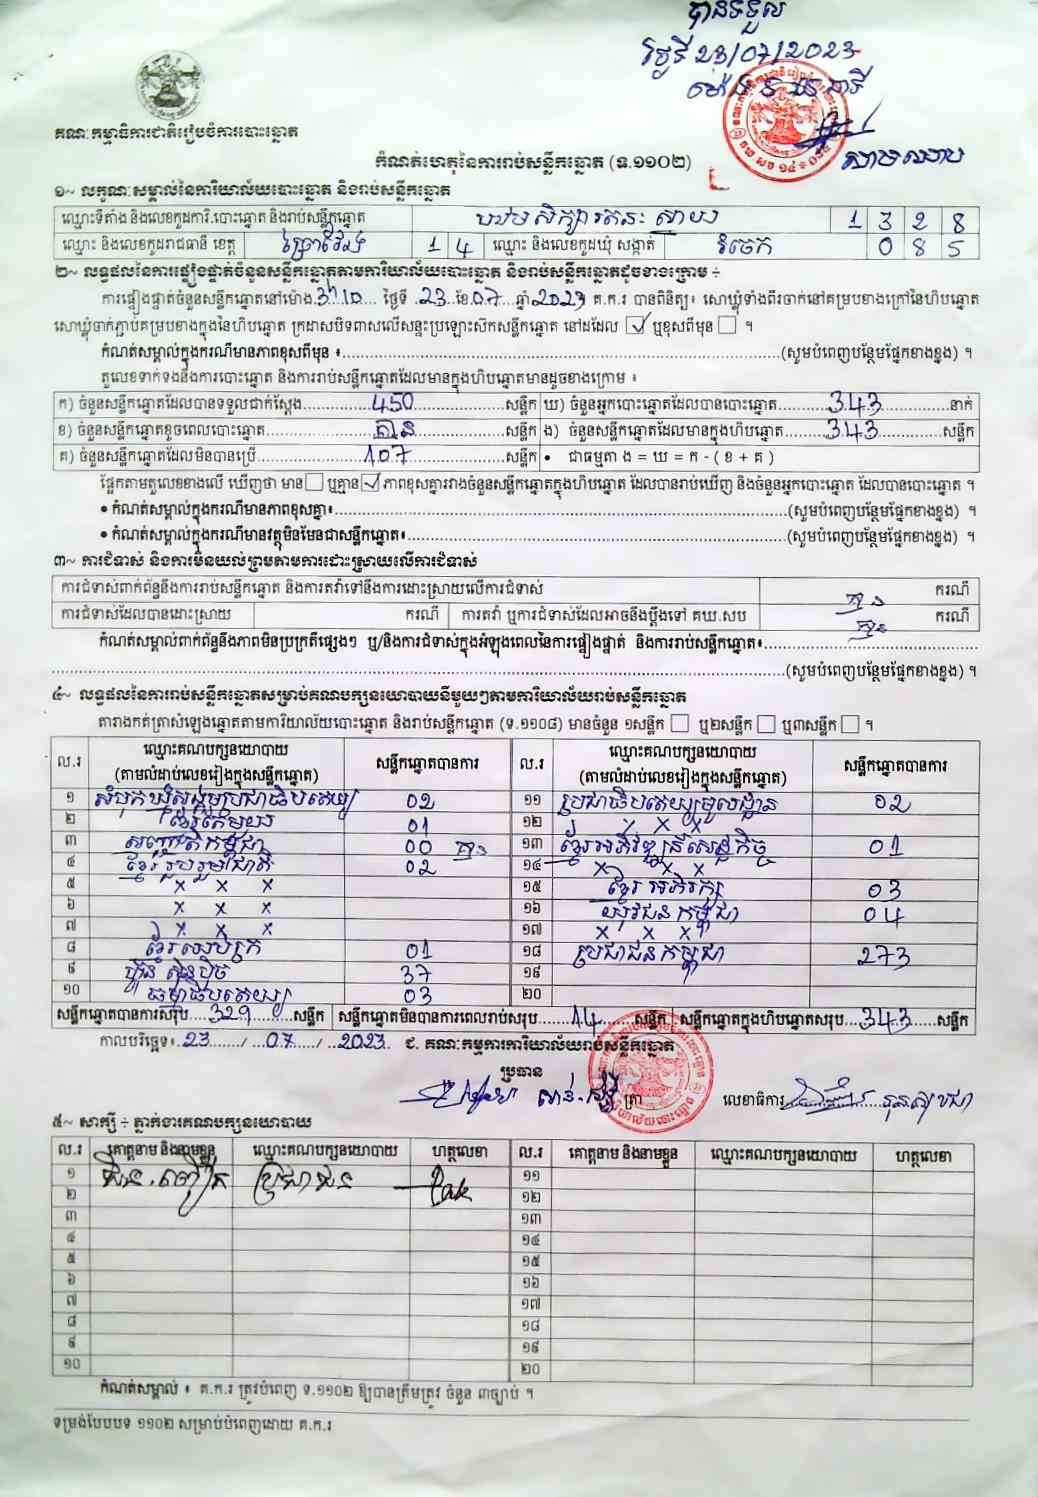 បានទទួល
ថ្ងៃទី 23/07/2023
គណៈកម្មាធិការជាតិរៀបចំការបោះឆ្នោត
កំណត់ហេតុនៃការរាប់សន្លឹកឆ្នោត (ទ.១១០២)
១~ លក្ខណៈសម្គាល់នៃការិយាល័យបោះឆ្នោត និងរាប់សន្លឹកឆ្នោត
ឈ្មោះទីតាំង និងលេខកូដការិ.បោះឆ្នោត និងរាប់សន្លឹកឆ្នោត បឋមសិក្សារតនៈ ស្វាយ 1 3 2 8
ឈ្មោះ និងលេខកូដរាជធានី ខេត្ត ព្រៃវែង 1 4 ឈ្មោះ និងលេខកូដឃុំ សង្កាត់ រំចេក 0 8 5
២~ លទ្ធផលនៃការផ្ទៀងផ្ទាត់ចំនួនសន្លឹកឆ្នោតតាមការិយាល័យបោះឆ្នោត និងរាប់សន្លឹកឆ្នោតដូចខាងក្រោម ÷
ការផ្ទៀងផ្ទាត់ចំនួនសន្លឹកឆ្នោតនៅម៉ោង 3:10 ថ្ងៃទី 23 ខែ 07 ឆ្នាំ 2023 គ.ក.រ បានពិនិត្យ៖ សោឃ្លុំទាំងពីរចាក់នៅគម្របខាងក្រៅនៃហិបឆ្នោត
សោឃ្លុំចាក់ភ្ជាប់គម្របខាងក្នុងនៃហិបឆ្នោត ក្រដាសបិទពាសលើសន្ទះប្រឡោះស៊កសន្លឹកឆ្នោត នៅដដែល ☑ ឬខុសពីមុន ☐ ។
កំណត់សម្គាល់ក្នុងករណីមានភាពខុសពីមុន ៖ (សូមបំពេញបន្ថែមផ្នែកខាងខ្នង) ។
តួលេខទាក់ទងនឹងការបោះឆ្នោត និងការរាប់សន្លឹកឆ្នោតដែលមានក្នុងហិបឆ្នោតមានដូចខាងក្រោម ៖
ក) ចំនួនសន្លឹកឆ្នោតដែលបានទទួលជាក់ស្តែង 450 សន្លឹក ឃ) ចំនួនអ្នកបោះឆ្នោតដែលបានបោះឆ្នោត 343 នាក់
ខ) ចំនួនសន្លឹកឆ្នោតខូចពេលបោះឆ្នោត គ្មាន សន្លឹក ង) ចំនួនសន្លឹកឆ្នោតដែលមានក្នុងហិបឆ្នោត 343 សន្លឹក
គ) ចំនួនសន្លឹកឆ្នោតដែលមិនបានប្រើ 107 សន្លឹក • ជាធម្មតា ង = ឃ = ក - ( ខ + គ )
ផ្អែកតាមតួលេខខាងលើ ឃើញថា មាន ☐ ឬគ្មាន ☑ ភាពខុសគ្នារវាងចំនួនសន្លឹកឆ្នោតក្នុងហិបឆ្នោត ដែលបានរាប់ឃើញ និងចំនួនអ្នកបោះឆ្នោត ដែលបានបោះឆ្នោត ។
• កំណត់សម្គាល់ក្នុងករណីមានភាពខុសគ្នា៖ (សូមបំពេញបន្ថែមផ្នែកខាងខ្នង) ។
• កំណត់សម្គាល់ក្នុងករណីមានវត្ថុមិនមែនជាសន្លឹកឆ្នោត៖ (សូមបំពេញបន្ថែមផ្នែកខាងខ្នង) ។
៣~ ការជំទាស់ និងការមិនយល់ព្រមតាមការដោះស្រាយលើការជំទាស់
ការជំទាស់ពាក់ព័ន្ធនឹងការរាប់សន្លឹកឆ្នោត និងការតវ៉ាទៅនឹងការដោះស្រាយលើការជំទាស់ គ្មាន ករណី
ការជំទាស់ដែលបានដោះស្រាយ ករណី ការតវ៉ា ឬការជំទាស់ដែលអាចនឹងប្តឹងទៅ គឃ.សប គ្មាន ករណី
កំណត់សម្គាល់ពាក់ព័ន្ធនឹងភាពមិនប្រក្រតីផ្សេងៗ ឬ/និងការជំទាស់ក្នុងអំឡុងពេលនៃការផ្ទៀងផ្ទាត់ និងការរាប់សន្លឹកឆ្នោត៖
(សូមបំពេញបន្ថែមផ្នែកខាងខ្នង) ។
៤~ លទ្ធផលនៃការរាប់សន្លឹកឆ្នោតសម្រាប់គណបក្សនយោបាយនីមួយៗតាមការិយាល័យរាប់សន្លឹកឆ្នោត
តារាងកត់ត្រាសំឡេងឆ្នោតតាមការិយាល័យបោះឆ្នោត និងរាប់សន្លឹកឆ្នោត (ទ.១១០៨) មានចំនួន ១សន្លឹក ☐ ឬ២សន្លឹក ☐ ឬ៣សន្លឹក ☐ ។
ល.រ ឈ្មោះគណបក្សនយោបាយ (តាមលំដាប់លេខរៀងក្នុងសន្លឹកឆ្នោត) សន្លឹកឆ្នោតបានការ ល.រ ឈ្មោះគណបក្សនយោបាយ (តាមលំដាប់លេខរៀងក្នុងសន្លឹកឆ្នោត) សន្លឹកឆ្នោតបានការ
១ សំបុកឃ្មុំសង្គមប្រជាធិបតេយ្យ 02 ១១ ប្រជាធិបតេយ្យមូលដ្ឋាន 02
២ ខ្មែរតែមួយ 01 ១២ x x x
៣ សញ្ជាតិកម្ពុជា 00 គ្មាន ១៣ ខ្មែរអភិវឌ្ឍន៍សេដ្ឋកិច្ច 01
៤ ខ្មែររួបរួមជាតិ 02 ១៤ x x x
៥ x x x ១៥ ខ្មែរអភិរក្ស 03
៦ x x x ១៦ យុវជនកម្ពុជា 04
៧ x x x ១៧ x x x
៨ ខ្មែរឈប់ក្រ 01 ១៨ ប្រជាជនកម្ពុជា 273
៩ ហ្វ៊ុនស៊ិនប៉ិច 37 ១៩
១០ ធម្មាធិបតេយ្យ 03 ២០
សន្លឹកឆ្នោតបានការសរុប 329 សន្លឹក សន្លឹកឆ្នោតមិនបានការពេលរាប់សរុប 14 សន្លឹក សន្លឹកឆ្នោតក្នុងហិបឆ្នោតសរុប 343 សន្លឹក
កាលបរិច្ឆេទ៖ 23 / 07 / 2023 ជ. គណៈកម្មការការិយាល័យរាប់សន្លឹកឆ្នោត
ប្រធាន
ត្រា លេខាធិការ
៥~ សាក្សី ÷ ភ្នាក់ងារគណបក្សនយោបាយ
ល.រ គោត្តនាម និងនាមខ្លួន ឈ្មោះគណបក្សនយោបាយ ហត្ថលេខា ល.រ គោត្តនាម និងនាមខ្លួន ឈ្មោះគណបក្សនយោបាយ ហត្ថលេខា
១ ប្រជាជន ១១
២ ១២
៣ ១៣
៤ ១៤
៥ ១៥
៦ ១៦
៧ ១៧
៨ ១៨
៩ ១៩
១០ ២០
កំណត់សម្គាល់ ៖ គ.ក.រ ត្រូវបំពេញ ទ.១១០២ ឱ្យបានត្រឹមត្រូវ ចំនួន ៣ច្បាប់ ។
ទម្រង់បែបបទ ១១០២ សម្រាប់បំពេញដោយ គ.ក.រ